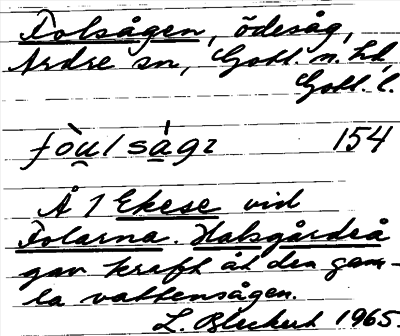 Folsågen, ödesåg,
Ardre sn, Gotl. n. hd,
Gotl. l.
fòu̲lsa̲gɩ 154
Å 1 Ekese vid
Folarna. Halsgårdeå
gav kraft åt den gam-
la vattensågen.
L. Bleckert 1965